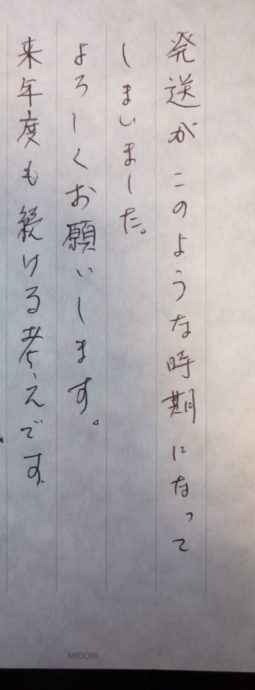 発送がこのような時期になって
しまいました。
よろしくお願いします。
来年度も続ける考えです
MIDORI